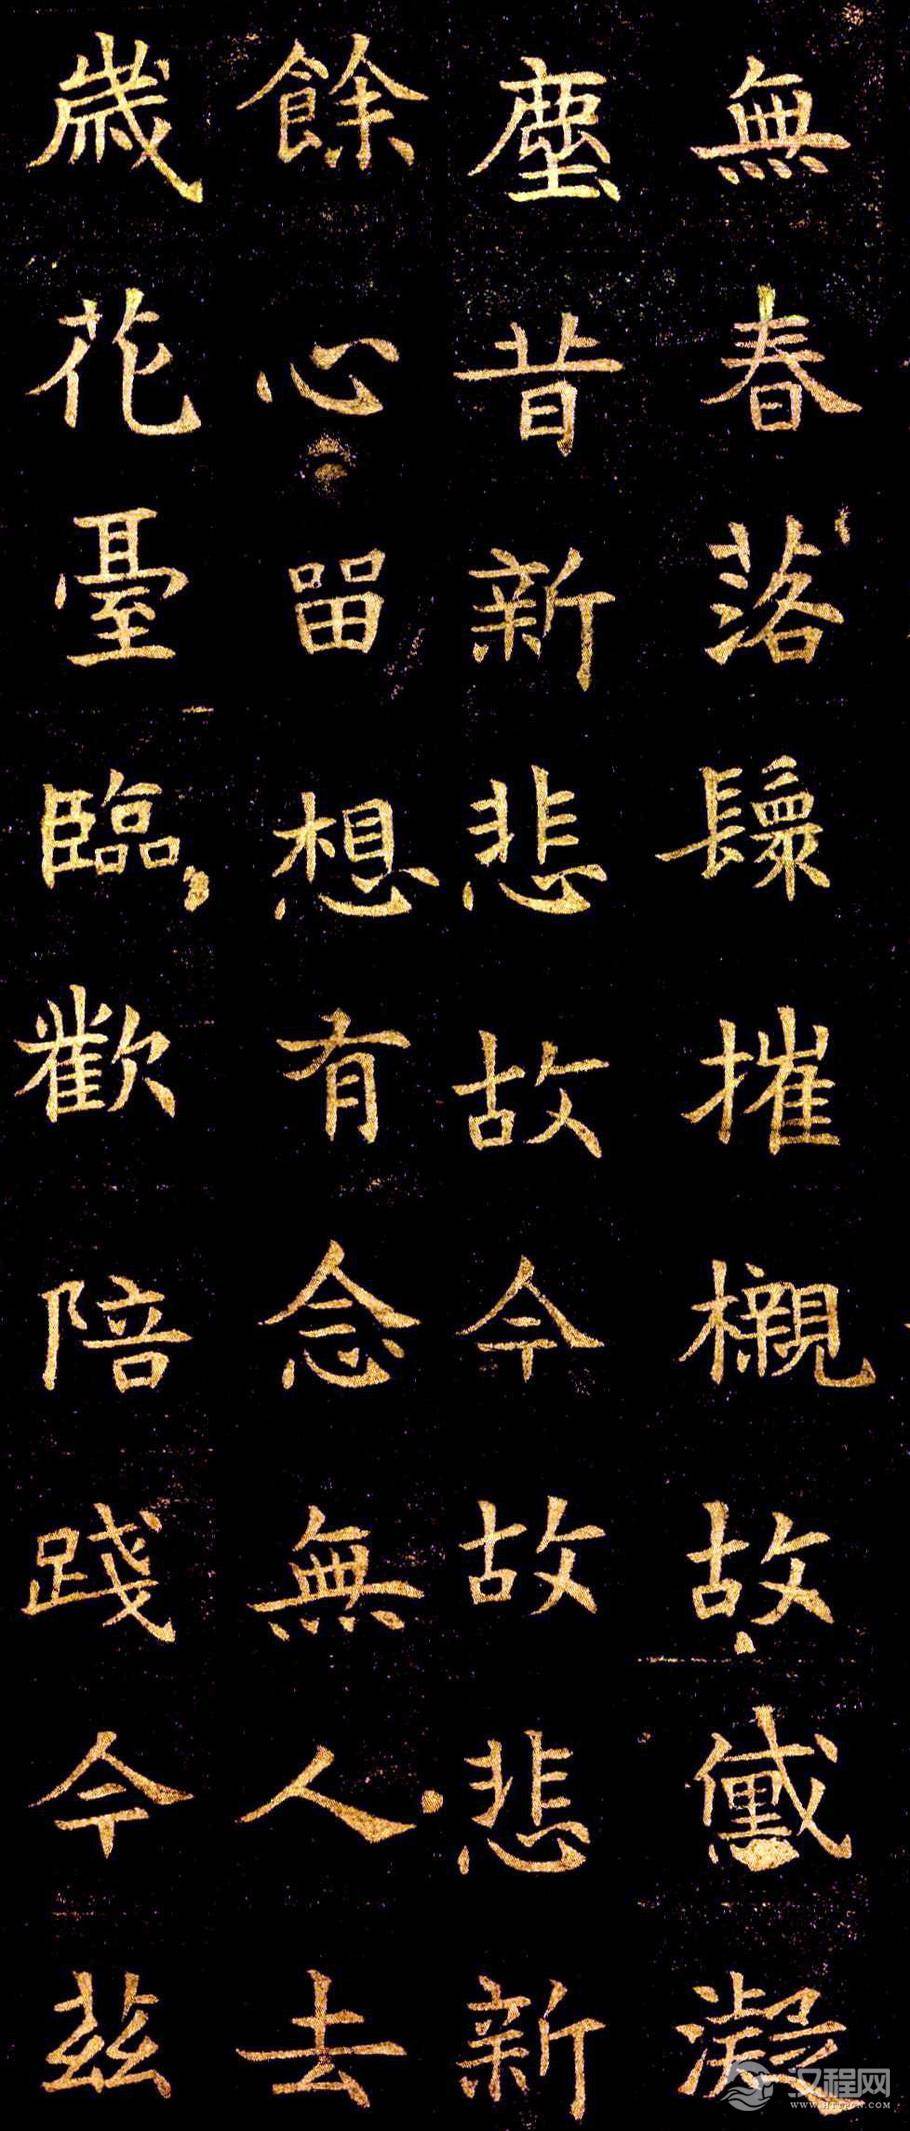 無春落鬟摧櫬故黛凝
塵昔新悲故今故悲新
餘心留想有念無人去
歳花臺臨歡陪踐今茲
汉程网
WWW.HTTPCN.COM